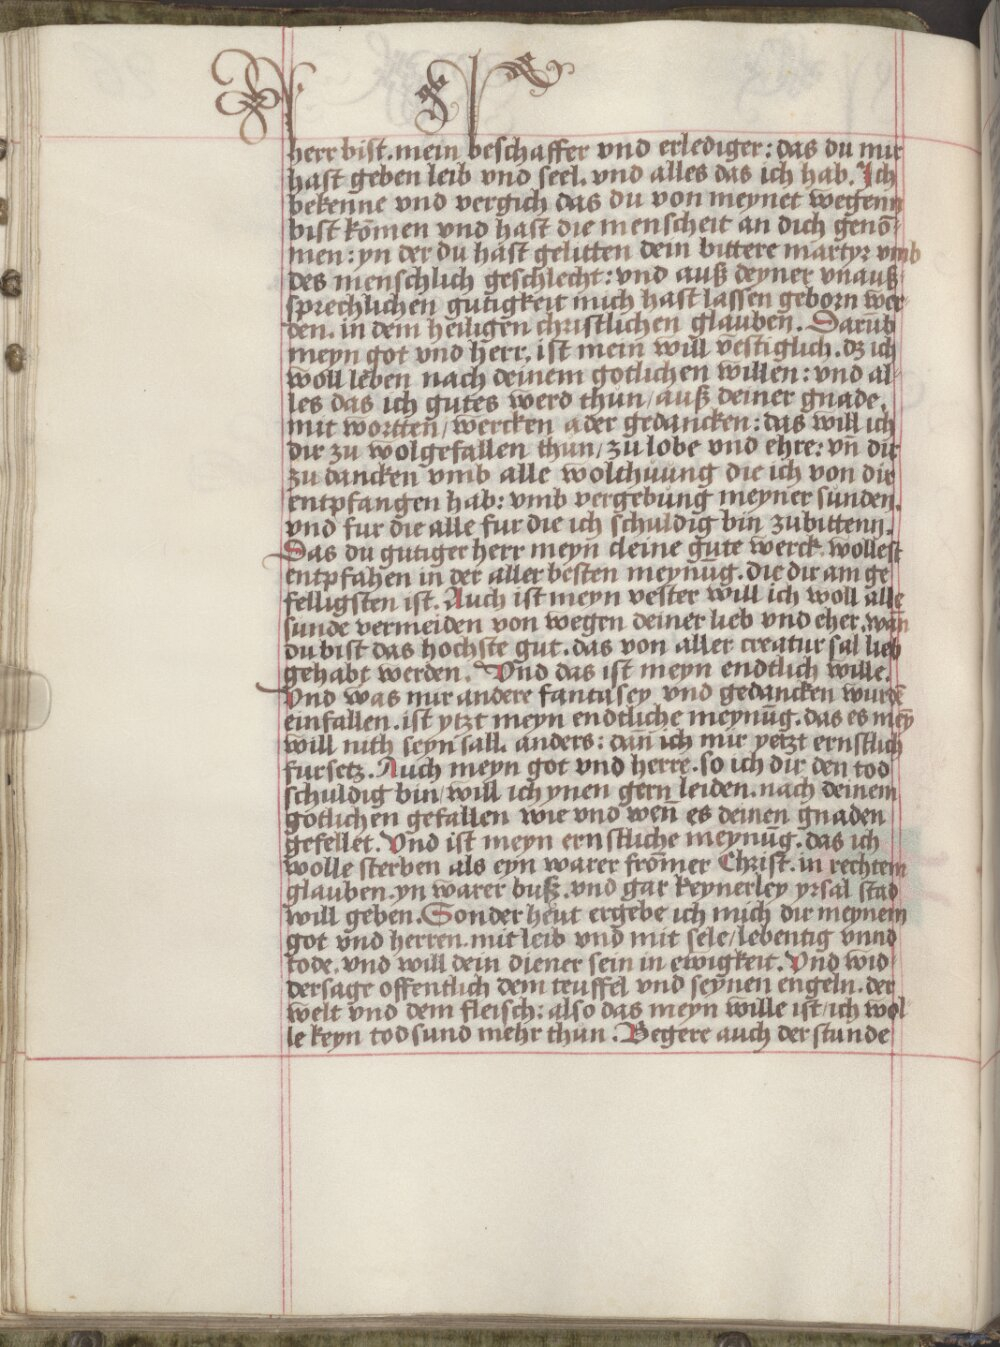 herr bist. mein beschaffer vnd erlediger: das du mir
hast geben leib vnd seel. vnd alles das ich hab. Ich
bekenne vnd vergich das du von meynet wegenn
bist kōmen vnd hast die menscheit an dich genō-
men: yn der du hast gelitten dein bittere martyr vmb
des menschlich geschlecht: vnd auß deyner vnauß-
sprechlichen gutigkeit mich hast lassen geborn wer-
den. in dem heiligen christlichen glauben. Darūb
meyn got vnd herr. ist mein will vestiglich. dz ich
woll leben nach deinem gotlichen willen: vnd al-
les das ich gutes werd thun/ auß deiner gnade.
mit wortten/ wercken ader gedancken: das will ich
dir zu wolgefallen thun/ zu lobe vnd ehre: vn̄ dir
zu dancken vmb alle wolthuung die ich von dir
entpfangen hab: vmb vergebung meyner sunden.
vnd fur die alle fur die ich schuldig bin zubittenn.
Das du gutiger herr meyn cleine gute werck. wollest
entpfahen in der aller besten meynūg. die dir am ge
felligsten ist. Auch ist meyn vester will ich woll alle
sunde vermeiden von wegen deiner lieb vnd eher. wan̄
du bist das hochste gut. das von aller creatur sal lieb
gehabt werden. Vnd das ist meyn endtlich wille.
Vnd was mir andere fantasey vnd gedancken wurdē
einfallen. ist ytzt meyn endtliche meynūg. das es meȳ
will nith seyn sall. anders: dan̄ ich mir yetzt ernstlich
fursetz. Auch meyn got vnd herre. so ich dir den tod
schuldig bin/ will ich ynen gern leiden. nach deinem
gotlichen gefallen wie vnd wen̄ es deinen gnaden
gefellet. Vnd ist meyn ernstliche meynūg. das ich
wolle sterben als eyn warer frōmer Christ. in rechtem
glauben. yn warer buß. vnd gar keynerley yrsal stad
will geben. Sonder heut ergebe ich mich dir meynem
got vnd herren. mit leib vnd mit sele/ lebentig vnnd
tode. vnd will dein diener sein in ewigkeit. Vnd wid-
dersage offentlich dem teuffel vnd seynen engeln. der
welt vnd dem fleisch: also das meyn wille ist/ ich wol-
le keyn todsund mehr thun. Begere auch der stunde